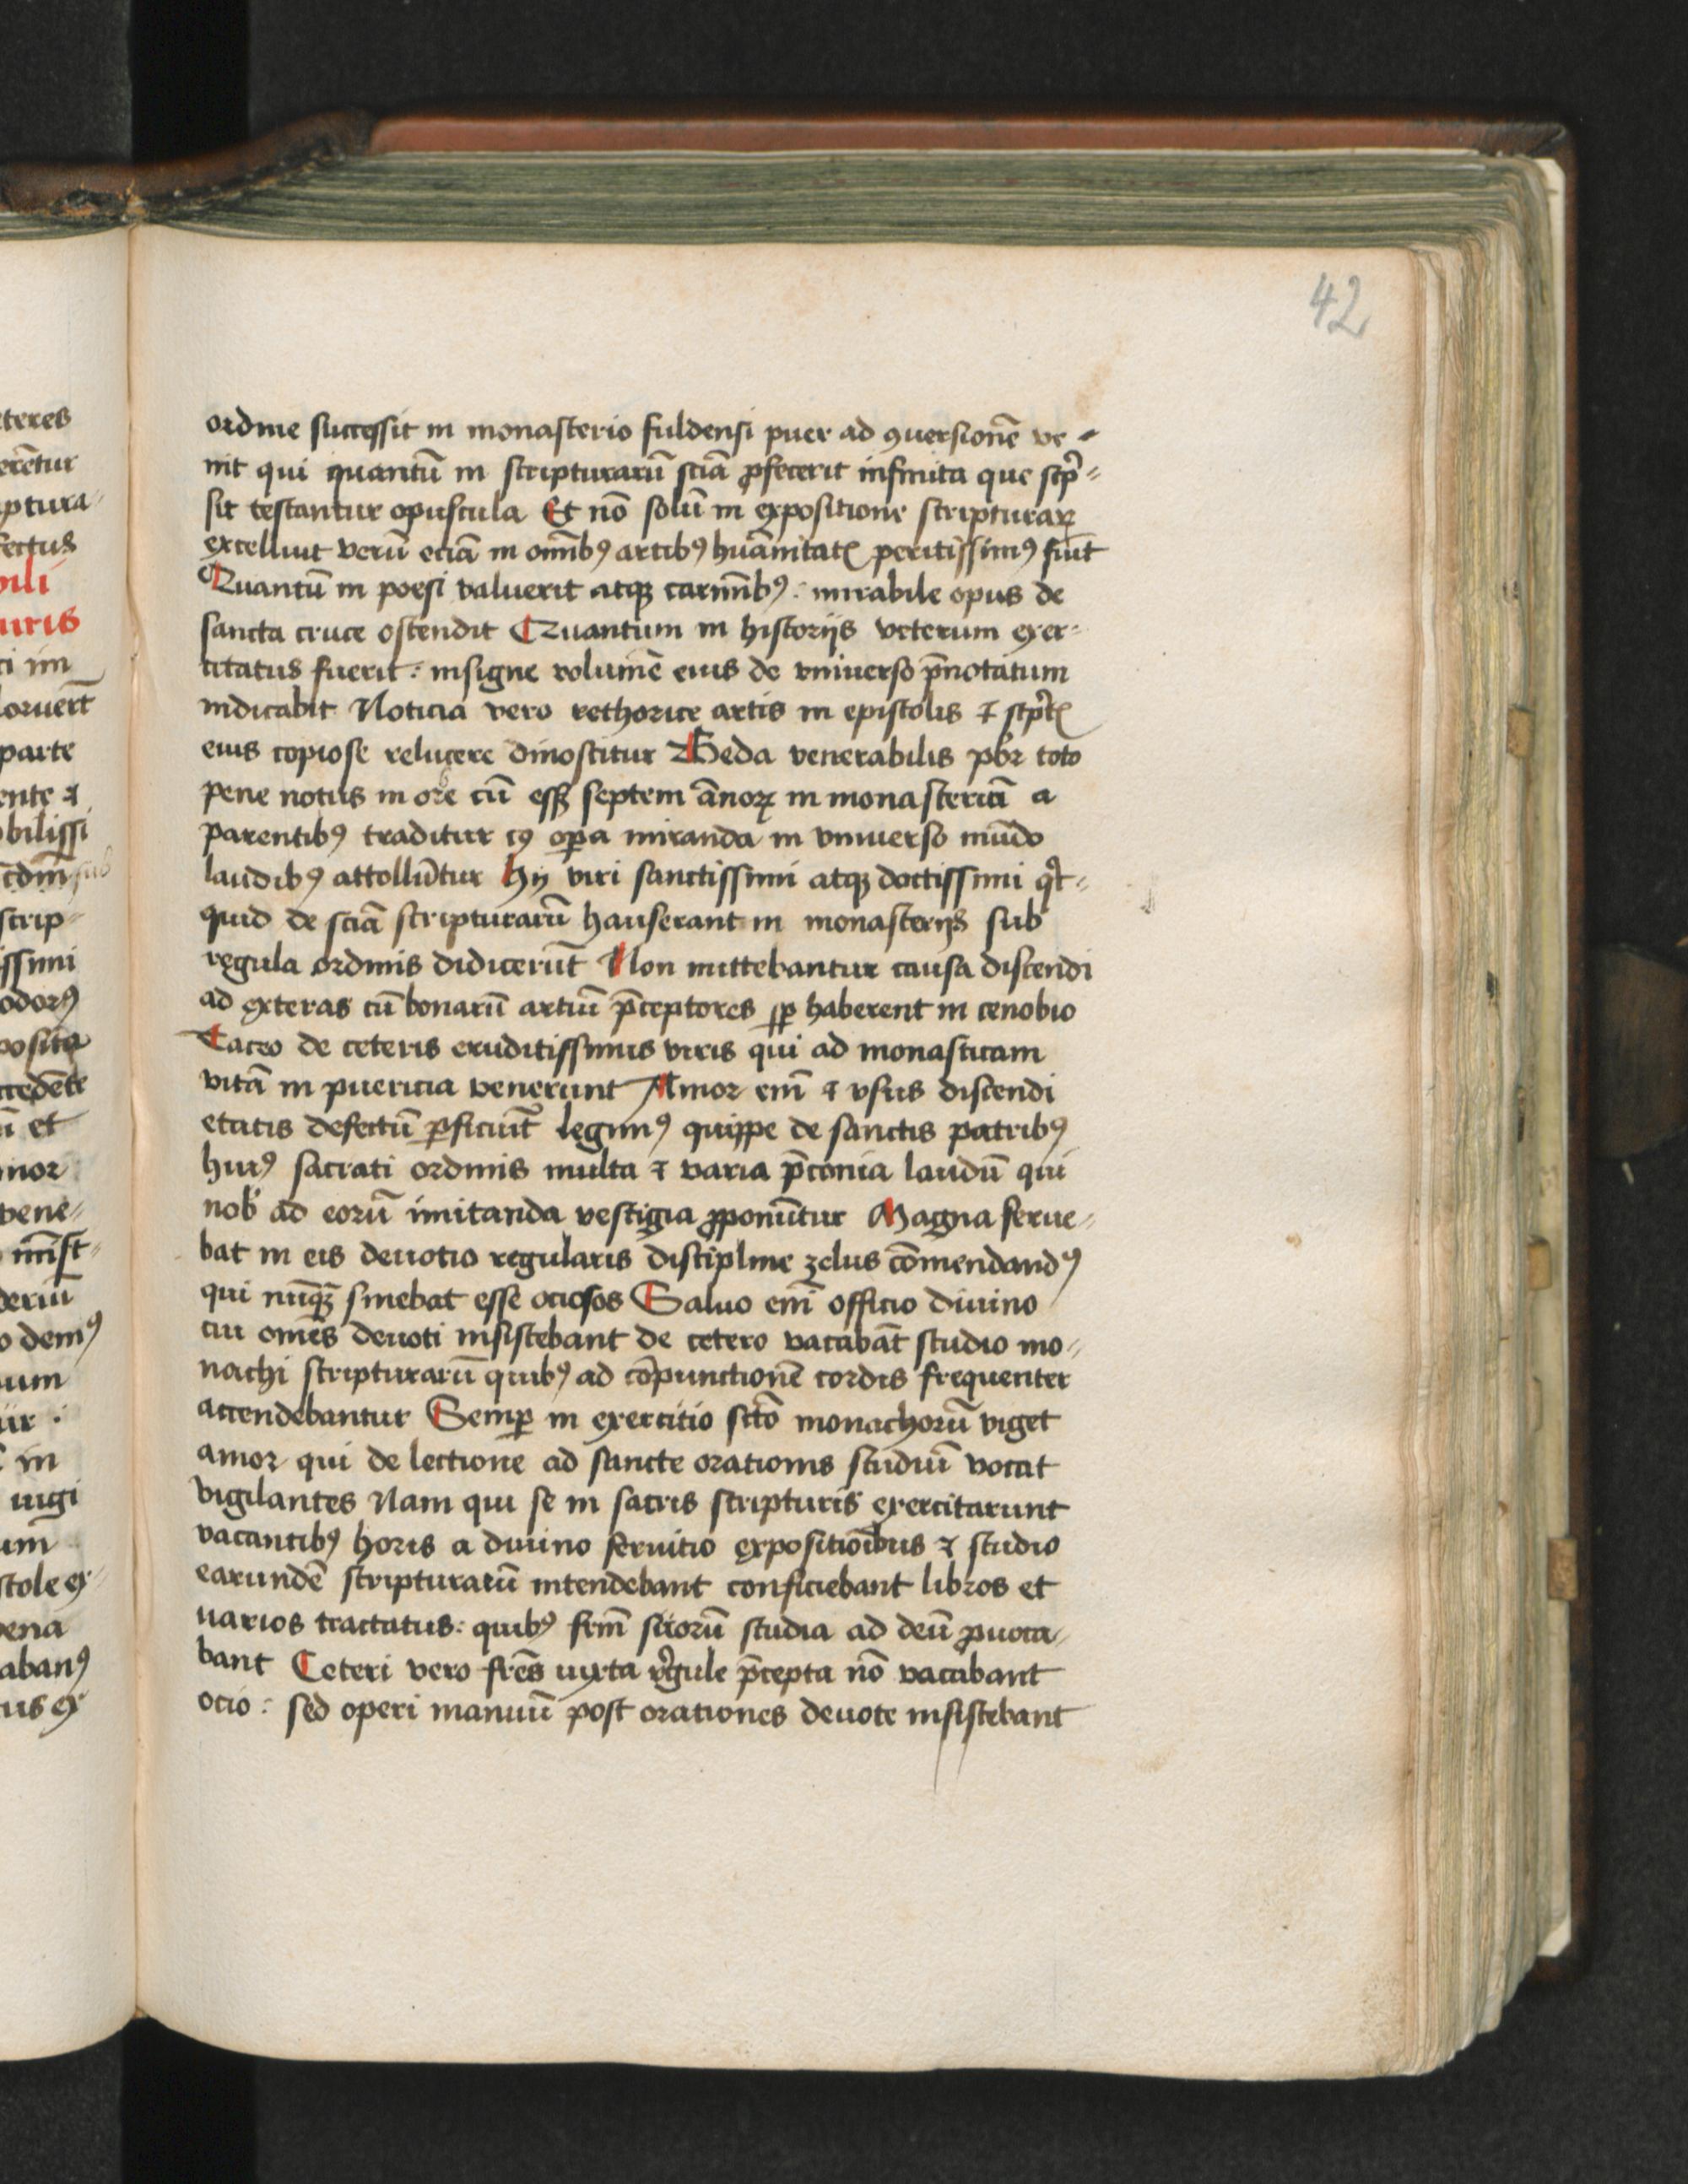 42
ordine successit in monasterio fuldensi puer ad ꝯuersionē ve
nit qui quantū in scripturarū sciā ꝓfecerit infinita que scp̄
sit testantur opuscula Et nō solū in expositione scripturaꝝ
excelluit verū eciā in omībꝰ artibꝰ huānitatꝭ peritissimꝰ fuit
Quantū in poesi valuerit atqꝫ carmībꝰ : mirabile opus de
sancta cruce ostendit Quantum in historijs veterum exer
citatus fuerit : insigne volumē eius de vniuerso p̄notatum
indicabit Noticia vero rethorice artis in epistolis ⁊ scp̄tꝭ
eius copiose relucere dinoscitur Beda venerabilis pbr toto
pene notus in orbe cū essꝫ septem ānoꝝ in monasteriū a
parentibꝰ traditur cꝰ oꝑa miranda in vniuerso mūdo
laudibꝰ attollūtur Hij viri sanctissimi atqꝫ doctissimi qͥc
quid de sciā scripturarū hauserant in monasterijs sub
regula ordinis didicerūt Non mittebantur causa discendi
ad exteras cū bonarū artiū p̄ceptores sꝑ haberent in cenobio
Taceo de ceteris eruditissimis viris qui ad monasticam
vitā in puericia venerunt Amor enī ⁊ vsus discendi
etatis defectū ꝑficiūt legimꝰ quippe de sanctis patribꝰ
huiꝰ sacrati ordinis multa ⁊ varia p̄conia laudū qui
nob̄ ad eorū imitanda vestigia ꝓponūtur Magna ferue
bat in eis deuotio regularis discipline zelus cōmendandꝰ
qui nūqꝫ sinebat esse ociosos Saluo enī officio diuino
cui omēs deuoti insistebant de cetero vacabāt studio mo
nachi scripturarū quibꝰ ad cōpunctionē cordis frequenter
accendebantur Semꝑ in exercitio sctō monachorū viget
amor qui de lectione ad sancte orationis studiū vocat
vigilantes Nam qui se in sacris scripturis exercitarunt
vacantibꝰ horis a diuino seruitio expositiōibus ⁊ studio
earundē scripturarū intendebant conficiebant libros et
uarios tractatus : quibꝰ frm̄ suorū studia ad deū ꝓuoca
bant Ceteri vero frēs iuxta r̄gule p̄cepta nō vacabant
ocio : sed operi manuū post orationes deuote insistebant